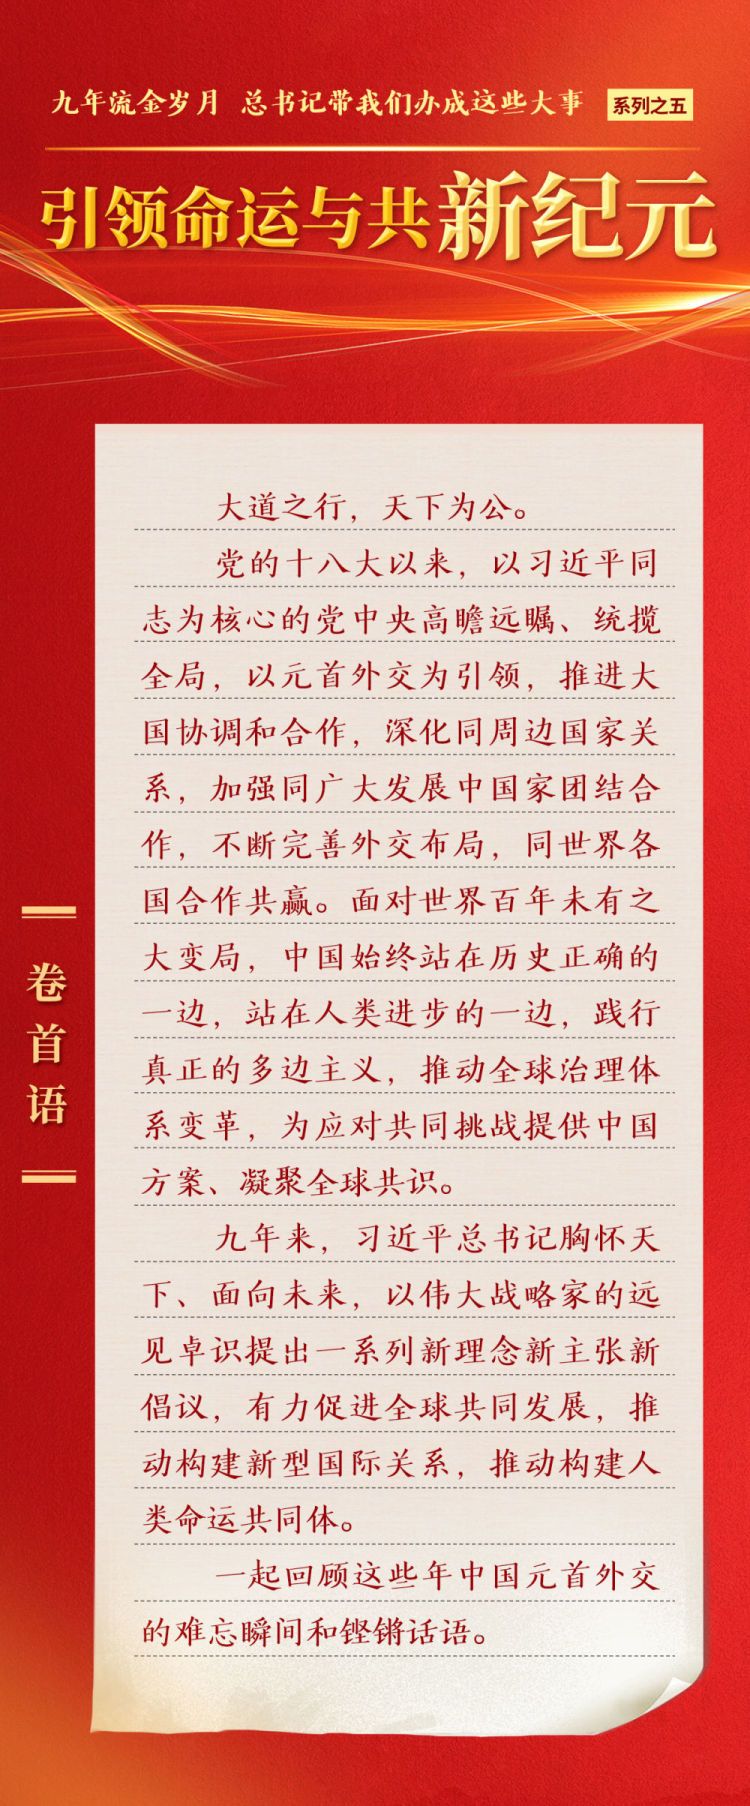 九年流金岁月 总书记带我们办成这些大事 系列之五
引领命运与共新纪元
卷首语
大道之行，天下为公。
党的十八大以来，以习近平同
志为核心的党中央高瞻远瞩、统揽
全局，以元首外交为引领，推进大
国协调和合作，深化同周边国家关
系，加强同广大发展中国家团结合
作，不断完善外交布局，同世界各
国合作共赢。面对世界百年未有之
大变局，中国始终站在历史正确的
一边，站在人类进步的一边，践行
真正的多边主义，推动全球治理体
系变革，为应对共同挑战提供中国
方案、凝聚全球共识。
九年来，习近平总书记胸怀天
下、面向未来，以伟大战略家的远
见卓识提出一系列新理念新主张新
倡议，有力促进全球共同发展，推
动构建新型国际关系，推动构建人
类命运共同体。
一起回顾这些年中国元首外交
的难忘瞬间和铿锵话语。